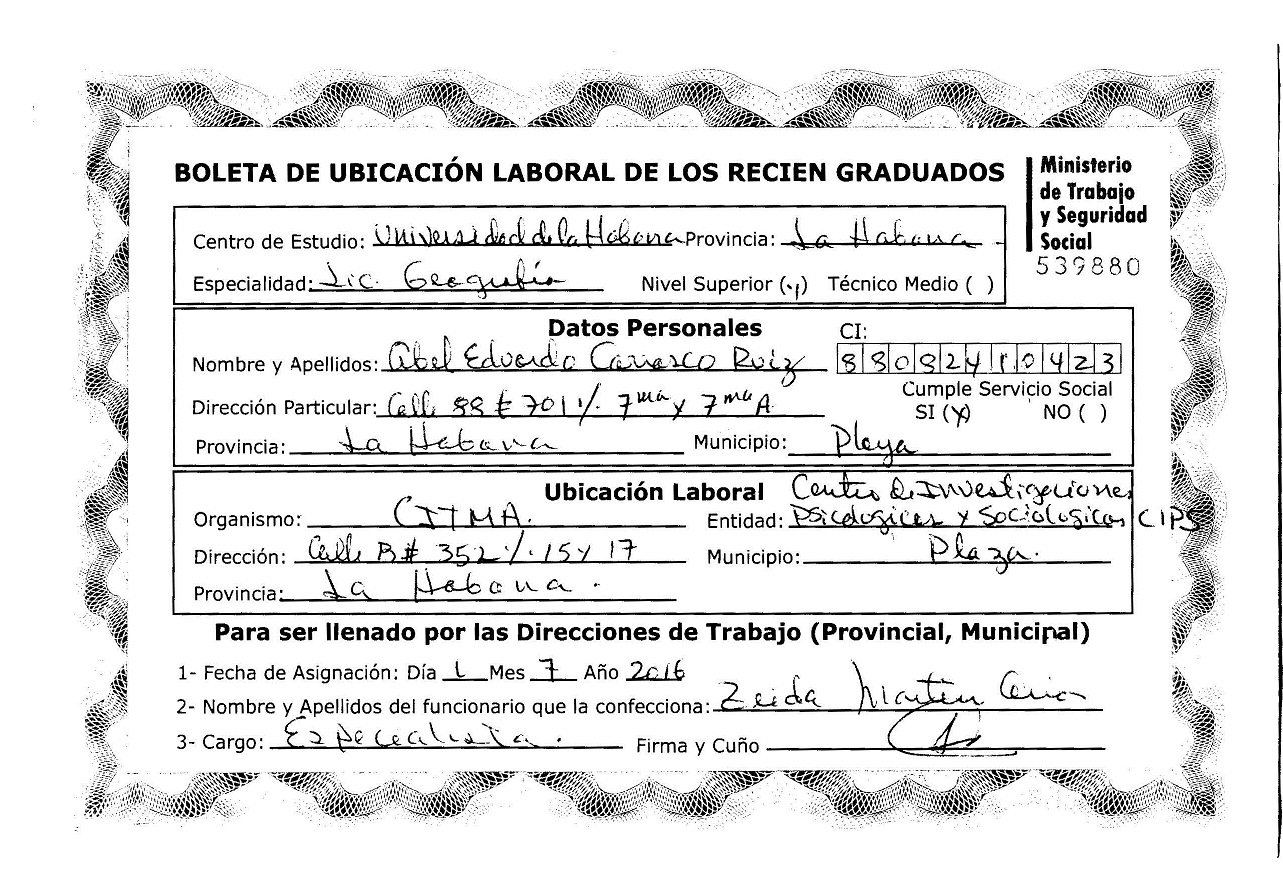 BOLETA DE UBICACIÓN LABORAL DE LOS RECIEN GRADUADOS
Ministerio
de Trabajo
y Seguridad
Social
539880
Centro de Estudio: Universidad de la Habana Provincia: La Habana
Especialidad: Lic. Geografía Nivel Superior (x) Técnico Medio ( )
Datos Personales
CI:
Nombre y Apellidos: Abel Eduardo Carrasco Ruiz 88082410423
Cumple Servicio Social
Dirección Particular: Calle 88 # 701 % 7ma y 7ma A
SI (x) NO ( )
Provincia: La Habana Municipio: Playa
Ubicación Laboral
Organismo: CITMA. Entidad: Centro de Investigaciones
Psicologicas y Sociologicas CIPS
Dirección: Calle B # 352 % 15 y 17 Municipio: Plaza.
Provincia: La Habana.
Para ser llenado por las Direcciones de Trabajo (Provincial, Municipal)
1- Fecha de Asignación: Día 1 Mes 7 Año 2016
2- Nombre y Apellidos del funcionario que la confecciona: Zeida Martin
3- Cargo: Especialista. Firma y Cuño